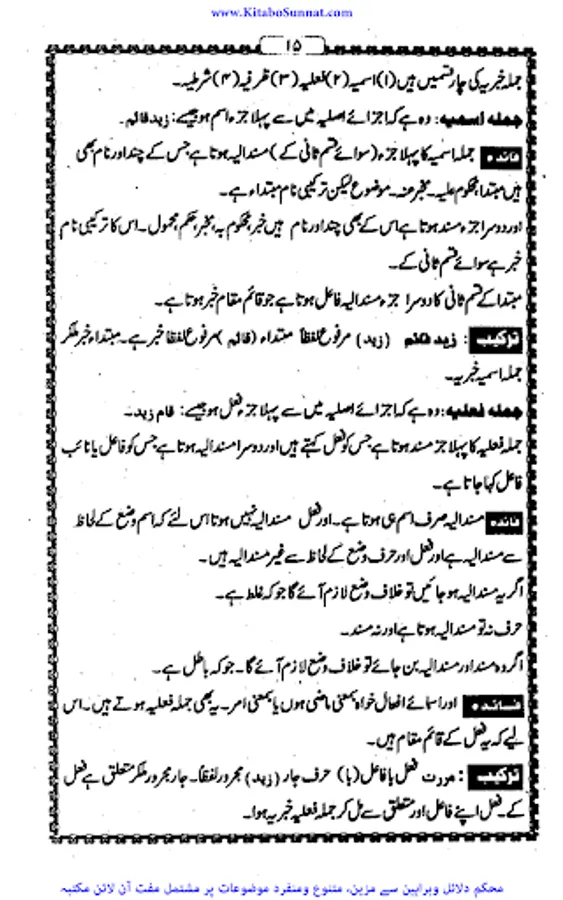 www.KitaboSunnat.com
۱۵
جملہ خبریہ کی چار قسمیں ہیں (۱) اسمیہ (۲) فعلیہ (۳) ظرفیہ (۴) شرطیہ۔
جملہ اسمیہ: وہ ہے کہ اجزائے اصلیہ میں سے پہلا جزء اسم ہو جیسے: زید قائم۔
فائدہ جملہ اسمیہ کا پہلا جزء (سوائے قسم ثانی کے) مسند الیہ ہوتا ہے جس کے چند اور نام بھی
ہیں مبتدا، محکوم علیہ۔ مخبر عنہ۔ موضوع لیکن ترکیبی نام مبتداء ہے۔
اور دوسرا جزء مسند ہوتا ہے اس کے بھی چند اور نام ہیں خبر، محکوم بہ، مخبر بہ، حکم، محمول۔ اس کا ترکیبی نام
خبر ہے سوائے قسم ثانی کے۔
مبتدا کے قسم ثانی کا دوسرا جزء مسند الیہ فاعل ہوتا ہے جو قائم مقام خبر ہوتا ہے۔
ترکیب: زید قائم (زید) مرفوع لفظاً مبتداء (قائم) مرفوع لفظاً خبر ہے۔ مبتداء خبر ملکر
جملہ اسمیہ خبریہ۔
جملہ فعلیہ: وہ ہے کہ اجزائے اصلیہ میں سے پہلا جزء فعل ہو جیسے: قام زید۔
جملہ فعلیہ کا پہلا جز مسند ہوتا ہے جس کو فعل کہتے ہیں اور دوسرا مسند الیہ ہوتا ہے جس کو فاعل یا نائب
فاعل کہا جاتا ہے۔
فائدہ مسند الیہ صرف اسم ہی ہوتا ہے۔ اور فعل مسند الیہ نہیں ہوتا اس لئے کہ اسم وضع کے لحاظ
سے مسند الیہ ہے اور فعل اور حرف وضع کے لحاظ سے غیر مسند الیہ ہیں۔
اگر یہ مسند الیہ ہو جائیں تو خلاف وضع لازم آئے گا جو کہ غلط ہے۔
حرف نہ تو مسند الیہ ہوتا ہے اور نہ مسند۔
اگر وہ مسند اور مسند الیہ بن جائے تو خلاف وضع لازم آئے گا۔ جو کہ باطل ہے۔
فائدہ اور اسمائے افعال خواہ بمعنی ماضی ہوں یا بمعنی امر۔ یہ بھی جملہ فعلیہ ہوتے ہیں۔ اس
لیے کہ یہ فعل کے قائم مقام ہیں۔
ترکیب: مررت فعل با فاعل (با) حرف جار (زید) مجرور لفظاً۔ جار مجرور ملکر متعلق ہے فعل
کے۔ فعل اپنے فاعل اور متعلق سے مل کر جملہ فعلیہ خبریہ ہوا۔
محکم دلائل وبراہین سے مزین، متنوع ومنفرد موضوعات پر مشتمل مفت آن لائن مکتبہ